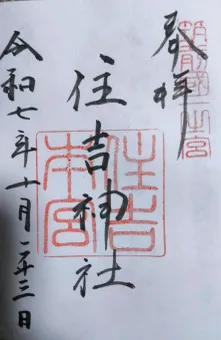 筑前國一宮
奉拝
住吉神社
住吉本宮
令和七年十月二十三日